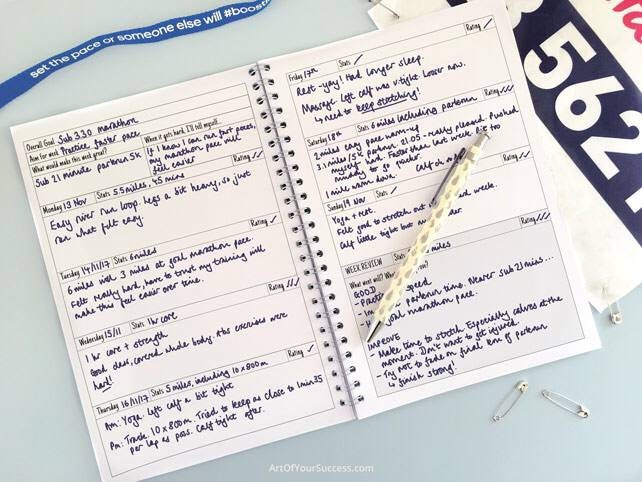 set the pace or someone else will #boost
Overall Goal Sub 3.30 marathon
Aim for week Practice faster pace
What would make this week great?
Sub 21 minute parkrun 5K
When it gets hard, I'll tell myself...
If I know I can run fast paces,
my marathon pace will
feel easier
Monday 13 Nov Stats 5.5 miles, 45 mins
Rating //
Easy river run loop. Legs a bit heavy, so just
ran what felt easy.
Tuesday 14/11/17 Stats 6 miles
Rating /
6 miles with 3 miles at goal marathon pace.
Felt really hard, have to trust my training will
make this feel easier over time.
Wednesday 15/11 Stats 1 hr core
Rating ///
1 hr core + strength
Good class, covered whole body. Abs exercises were
hard!
Thursday 16/11/17 Stats 5 miles, including 10 x 800m
Rating /
Am: Yoga. Left calf a bit tight
Pm: Track. 10 x 800m. Tried to keep as close to 1min35
per lap as poss. Calf tight after.
Friday 17th Stats /
Rating /
Rest - yay! Had longer sleep.
Massage. Left calf was v. tight. Looser now.
↳ need to keep stretching!
Saturday 18th Stats 6 miles including parkrun
Rating ///
2 miles easy pace warm-up
3.1 miles/5k parkrun. 21.05 - really pleased. Pushed
myself hard. Faster than last week. Bit to
mindy to go quicker.
1 mile warm down. Calf ok
Sunday 19 Nov Stats /
Rating //
Yoga + rest.
Felt good to stretch out hard week.
Calf little tight but
WEEK REVIEW Stats miles
Rating ///
What went well?
GOOD
speed
parkrun time. Nearer sub 21 mins...
goal marathon pace.
IMPROVE
- Make time to stretch. Especially calves at the
moment. Don't want to get injured.
- Try not to fade on final km of parkrun
↳ finish strong!
562
ArtOfYourSuccess.com